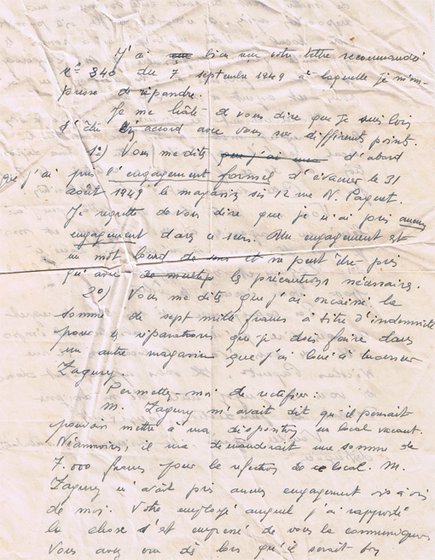 J'ai bien reçu votre lettre recommandée
N° 340 du 7 septembre 1949 à laquelle je m'em-
presse de répondre.
Je me hâte de vous dire que je suis loin
d'être en accord avec vous sur différents points.
1°) Vous me dites que j'ai d'abord
que j'ai pris l'engagement formel d'évacuer le 31
août 1949 le magasin sis 12 rue N. Paquet.
Je regrette de vous dire que je n'ai pris aucun
engagement dans ce sens. Un engagement est
un mot lourd de sens et ne peut être pris
qu'avec les précautions nécessaires.
2°) Vous me dites que j'ai encaissé la
somme de sept mille francs à titre d'indemnité
pour les réparations que je dois faire dans
un autre magasin que j'ai loué à Monsieur
Zagury.
Permettez-moi de rectifier:
M. Zagury m'avait dit qu'il pensait
pouvoir mettre à ma disposition un local vacant.
Néanmoins, il me demandait une somme de
7.000 francs pour la réfection de ce local. M.
Zagury n'avait pris aucun engagement vis à vis
de moi. Votre employé auquel j'ai rapporté
la chose s'est empressé de vous la communiquer.
Vous avez cru dès lors qu'il serait bon